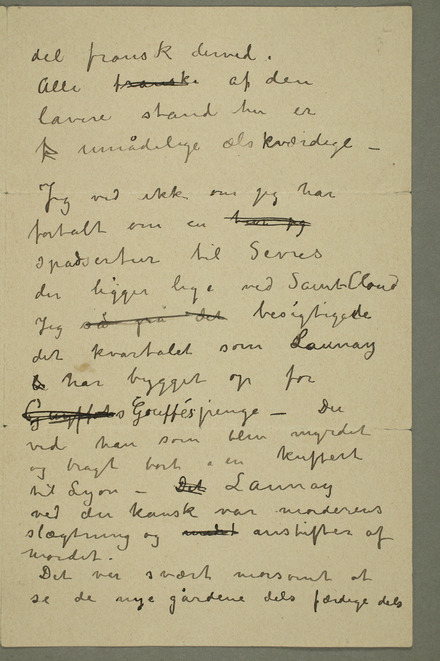 del fransk derved.
Alle franske af den
lavere stand her er
umådelige elskværdige –
Jeg ved ikke om jeg har
fortalt om en hvor jeg
spadsertur til Sevres
der ligger lige ved Saint-Cloud
Jeg så på det besigtigede
det kvartalet som Launay
har bygget op for
Gouffés penge – Du
ved han som blev myrdet
og bragt bort i en kuffert
til Lyon – Det Launay
ved du kansk var morderens
slægtning og anstifter af
mordet.
Det var svært morsomt at
se de nye gårdene dels færdige dels